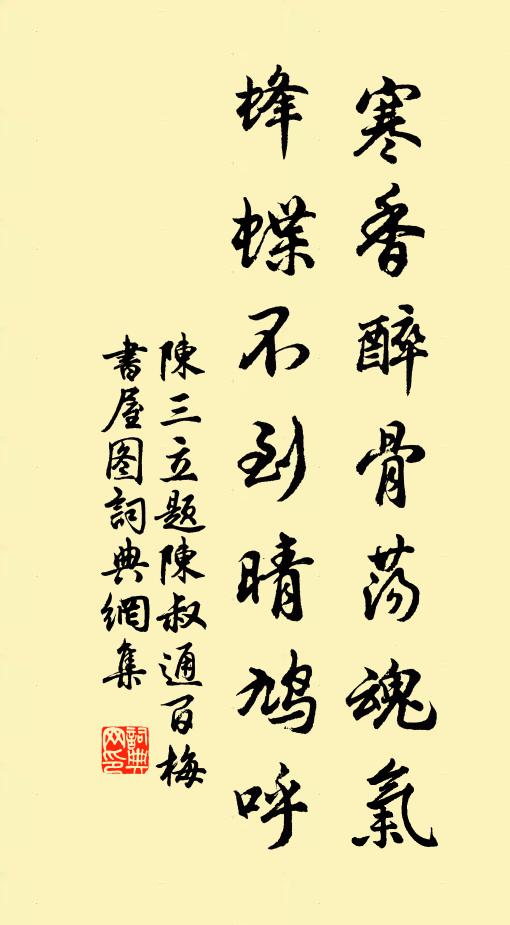 寒香醉骨荡魂氣
蜂蝶不到晴鳩呼
陳三立題陳叔通百梅
書屋图詞典網集
詞典
网印